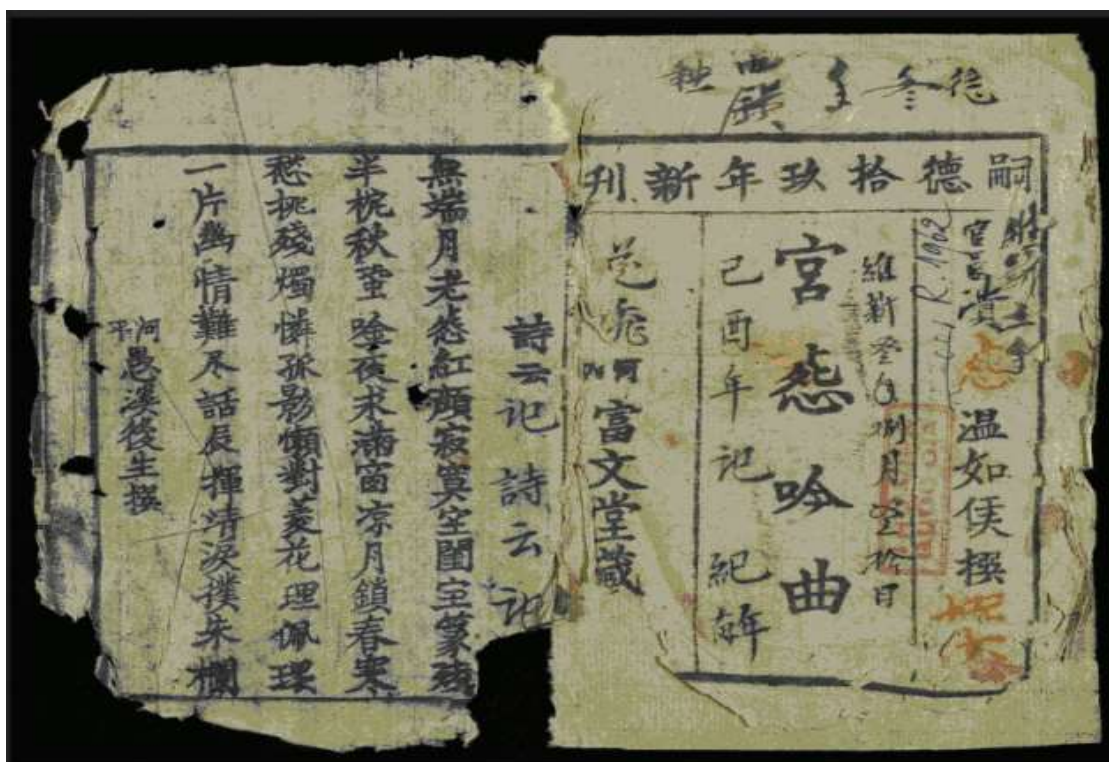 嗣德拾玖年新刊
溫如侯撰
R.1962
維新 捌月 拾日
宮㤪吟曲
己酉年记 紀
富文堂藏
詩云记 詩云记
無端月老㤪紅顏寂寞空閨宝篆殘
半枕秋蛩吟夜永滿窗凉月鎖春寒
愁挑殘燭憐孤影懶對菱花理佩環
一片幽情難尽話辰揮清淚撲朱欄
河平愚溪後生撰